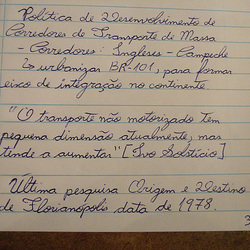 Política de Desenvolvimento de
Corredores de Transporte de Massa
- Corredores: Ingleses - Campeche
↳ urbanizar BR-101, para formar
eixo de integração no continente
"O transporte não motorizado tem
pequena dimensão atualmente, mas
tende a aumentar" [Ivo Sostício]
Última pesquisa Origem e Destino
de Florianópolis data de 1978.
3